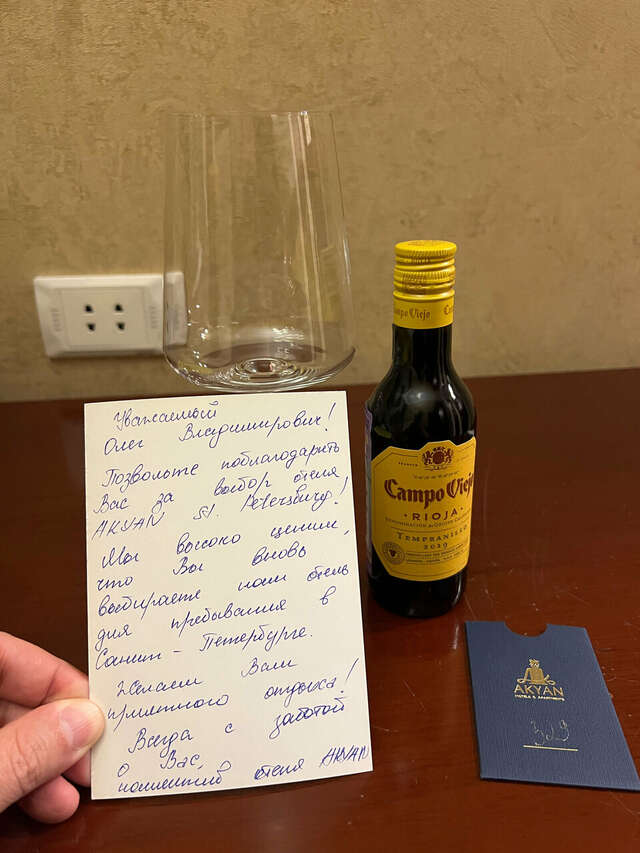 Уважаемый
Олег Владимирович!
Позвольте поблагодарить
Вас за выбор отеля
AKYAN St. Petersburg!
Мы высоко ценим,
что Вы вновь
выбираете наш отель
для пребывания в
Санкт-Петербурге.
Желаем Вам
приятного отдыха!
Всегда с заботой
о Вас,
коллектив отеля AKYAN
Campo Viejo
Campo Viejo
RIOJA
DENOMINACIÓN DE ORIGEN CALIFICADA
TEMPRANILLO
2019
AKYAN
HOTELS & APARTMENTS
329